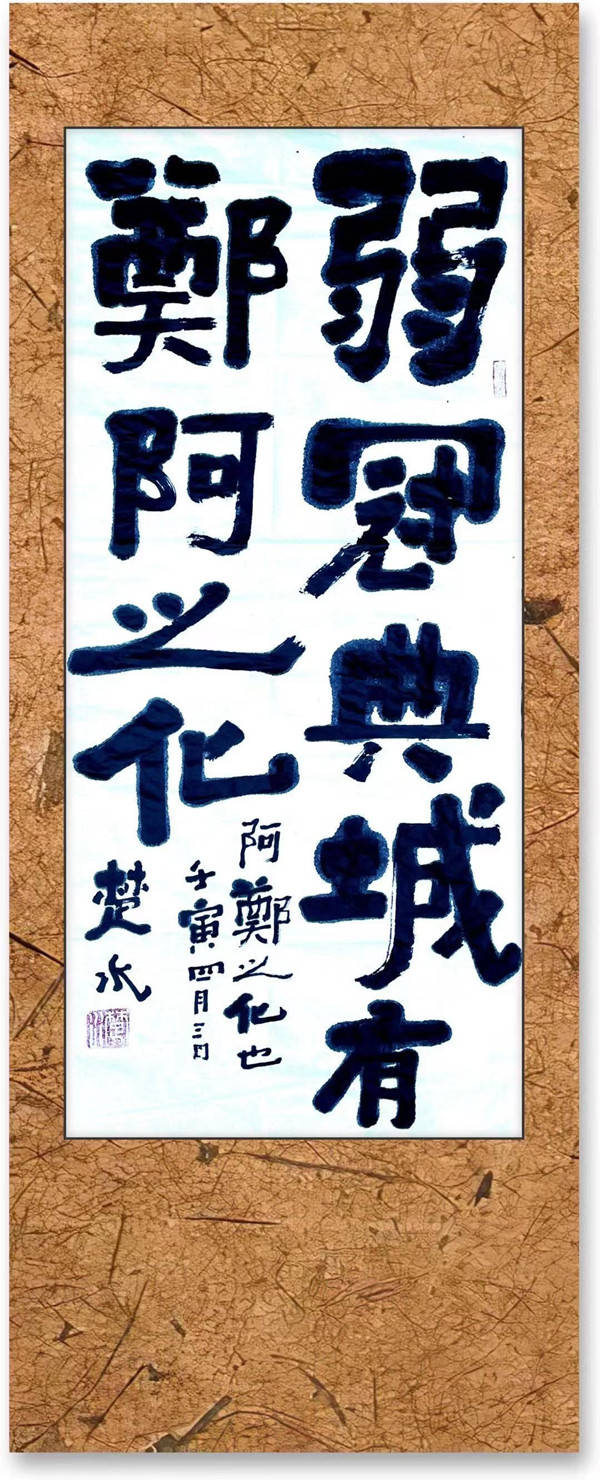 弱冠典城有
鄭阿之化
阿鄭之化也
壬寅四月三日
楚水